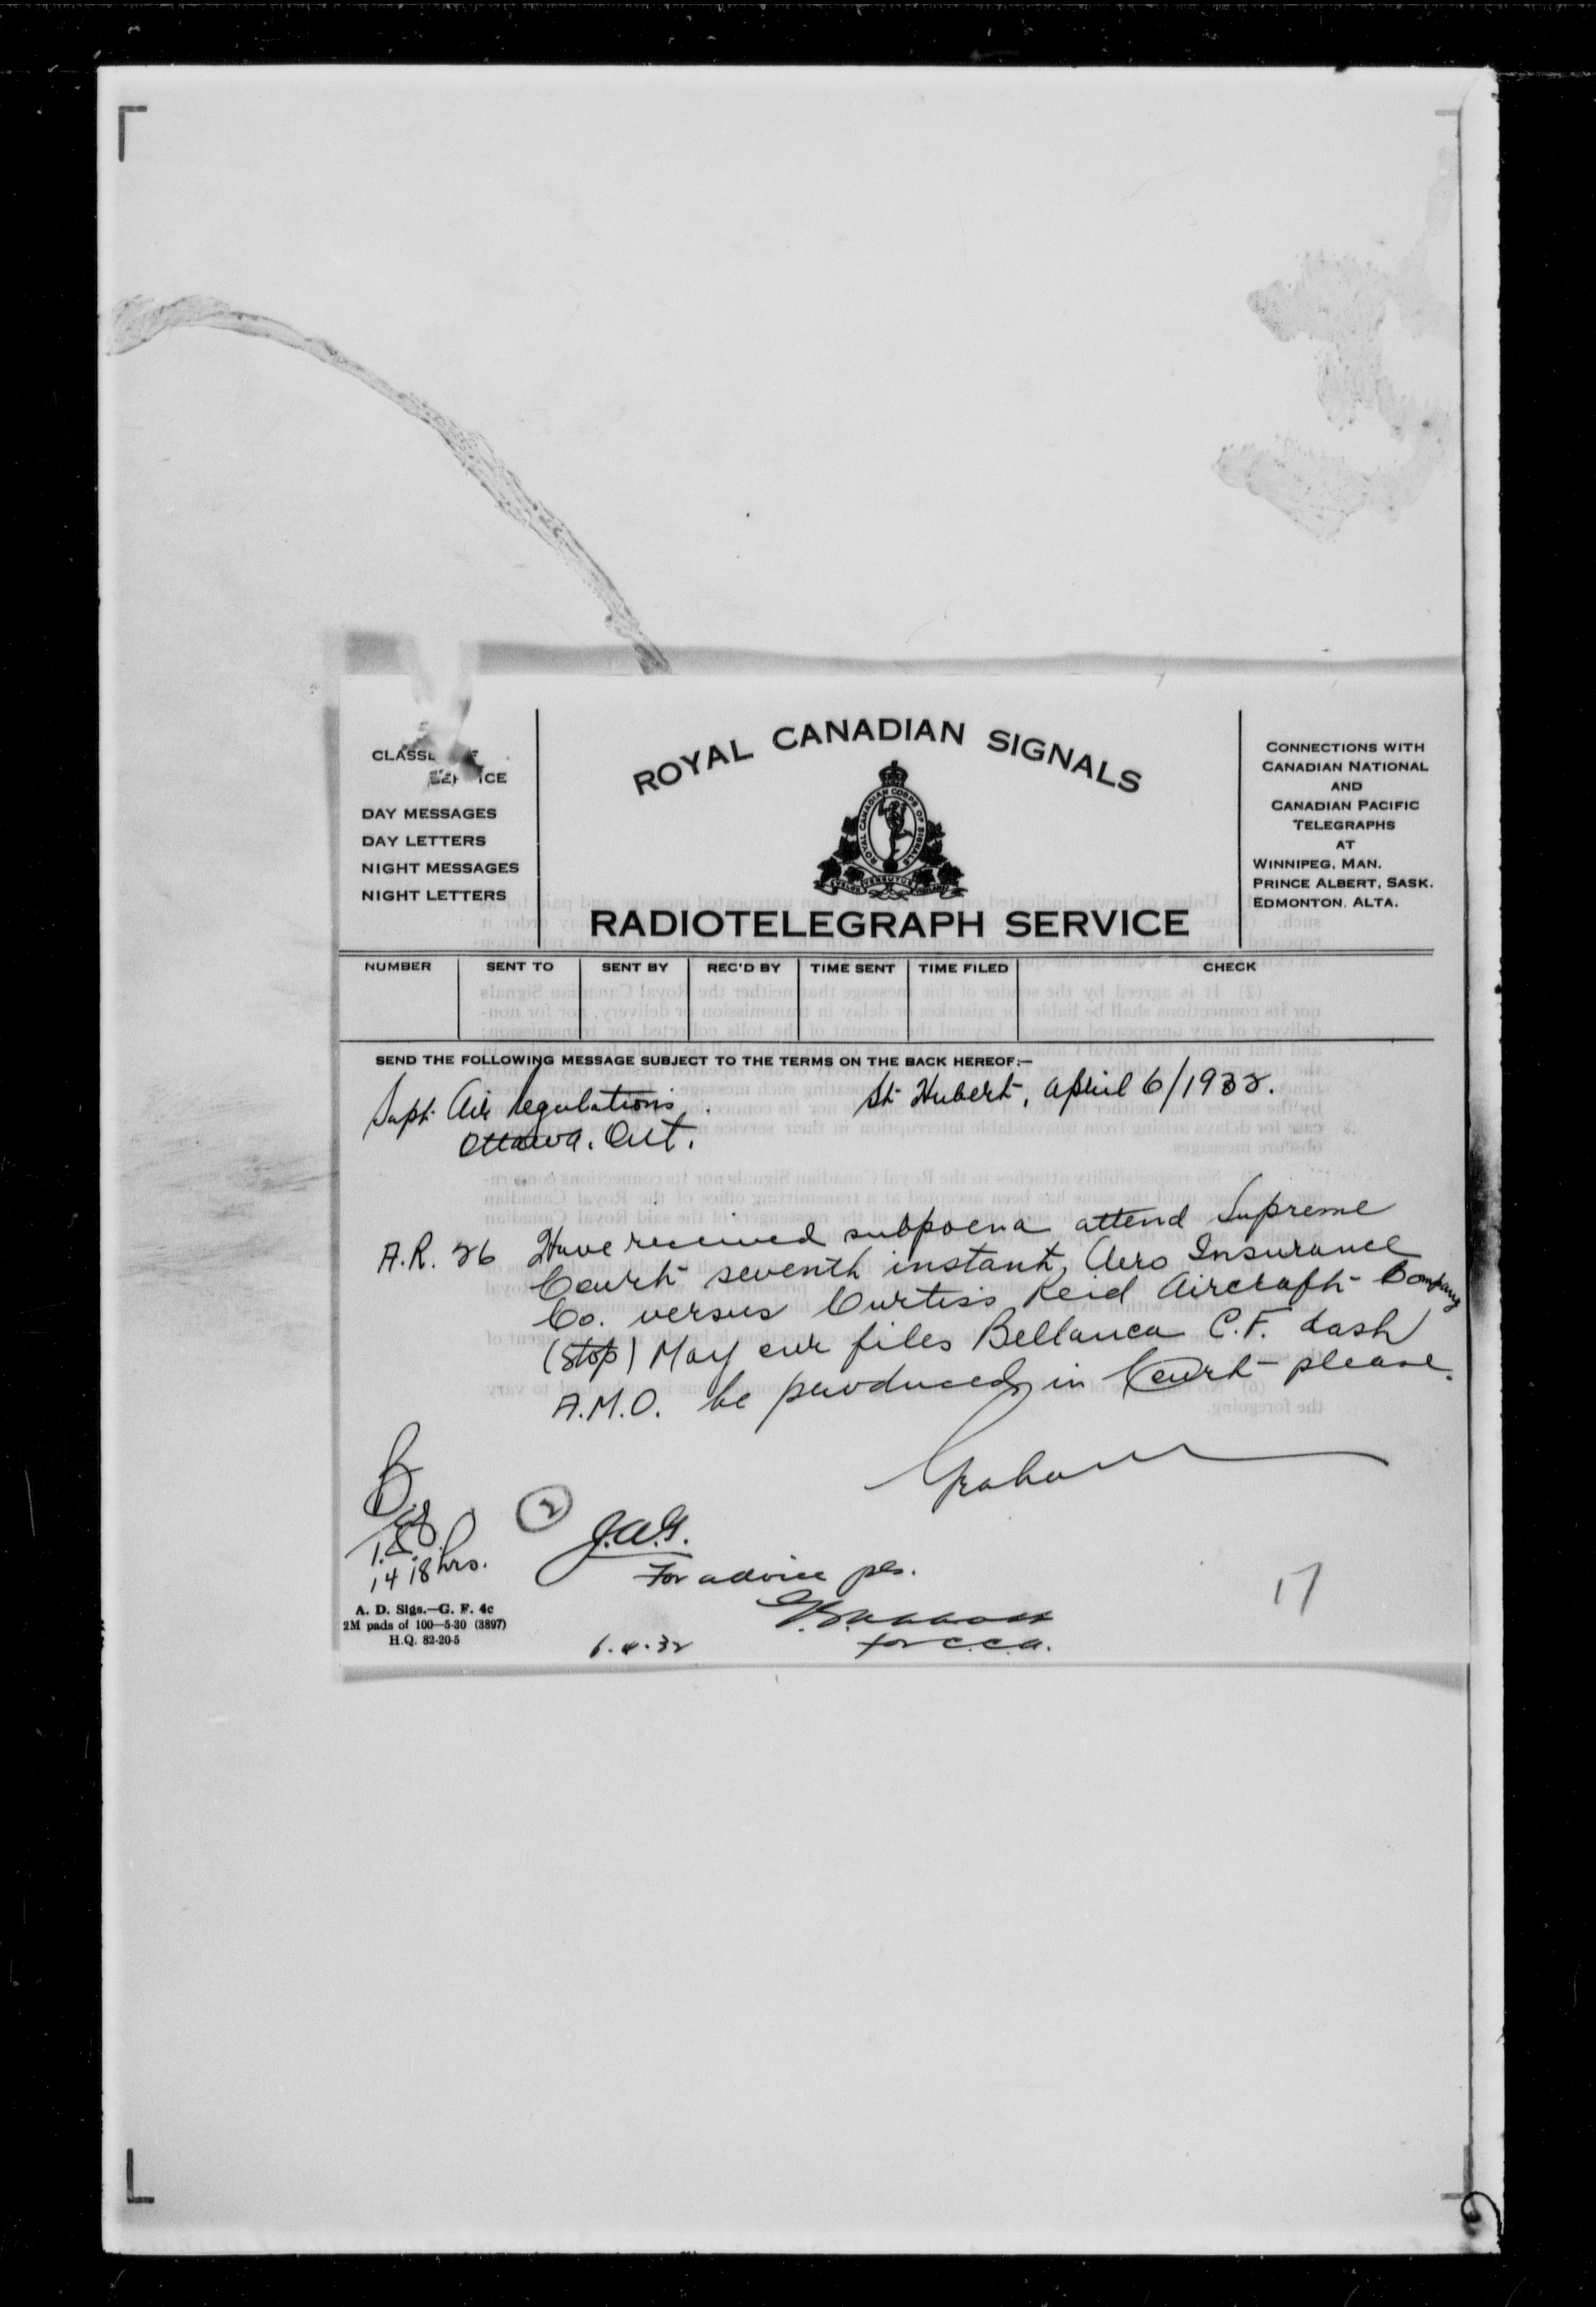 CLASSE OF
SERVICE
DAY MESSAGES
DAY LETTERS
NIGHT MESSAGES
NIGHT LETTERS
ROYAL CANADIAN SIGNALS
ROYAL CANADIAN CORPS OF SIGNALS
RADIOTELEGRAPH SERVICE
CONNECTIONS WITH
CANADIAN NATIONAL
AND
CANADIAN PACIFIC
TELEGRAPHS
AT
WINNIPEG, MAN.
PRINCE ALBERT, SASK.
EDMONTON, ALTA.
NUMBER SENT TO SENT BY REC'D BY TIME SENT TIME FILED CHECK
SEND THE FOLLOWING MESSAGE SUBJECT TO THE TERMS ON THE BACK HEREOF:—
St. Hubert, April 6/1932.
Supt. Air Regulations
Ottawa. Ont.
A.R. 26 Have received subpoena attend Supreme
Court seventh instant, Aero Insurance
Co. versus Curtiss Reid Aircraft Company
(stop) May our files Bellanca C.F. dash
A.M.O. be produced in Court please.
Graham
1418 hrs.
2
J.A.G.
For advice pls.
for C.C.A.
6.4.32
17
A. D. Sigs.—G. F. 4c
2M pads of 100—5-30 (3897)
H.Q. 82-20-5